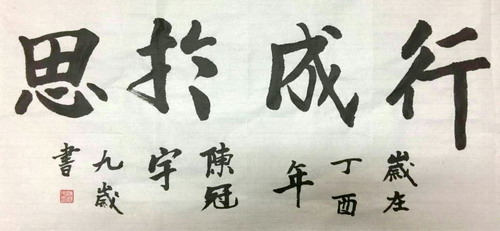 行成於思
歲在
丁酉
年
陳冠
宇
九歲
書